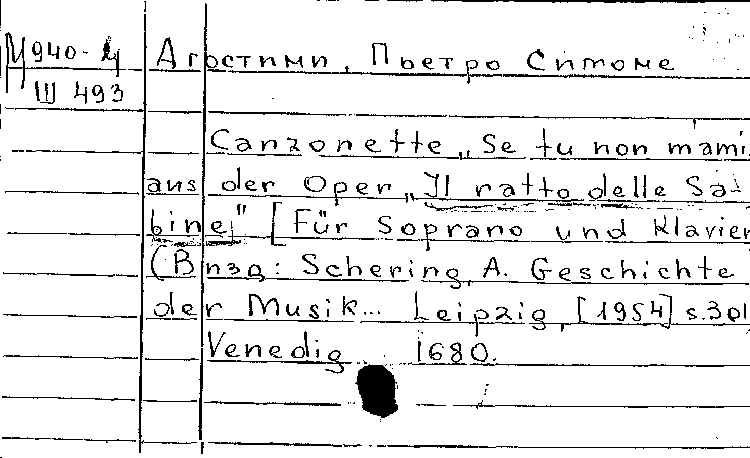 М940-4 Агостими, Пьетро Симоме
III 493
Canzonette „Se tu non m'ami
aus der Oper „Il ratto delle Sa-
bine" [Für Soprano und Klavier
(В изд: Schering, A. Geschichte
der Musik... Leipzig, [1954] s.301
Venedig 1680.